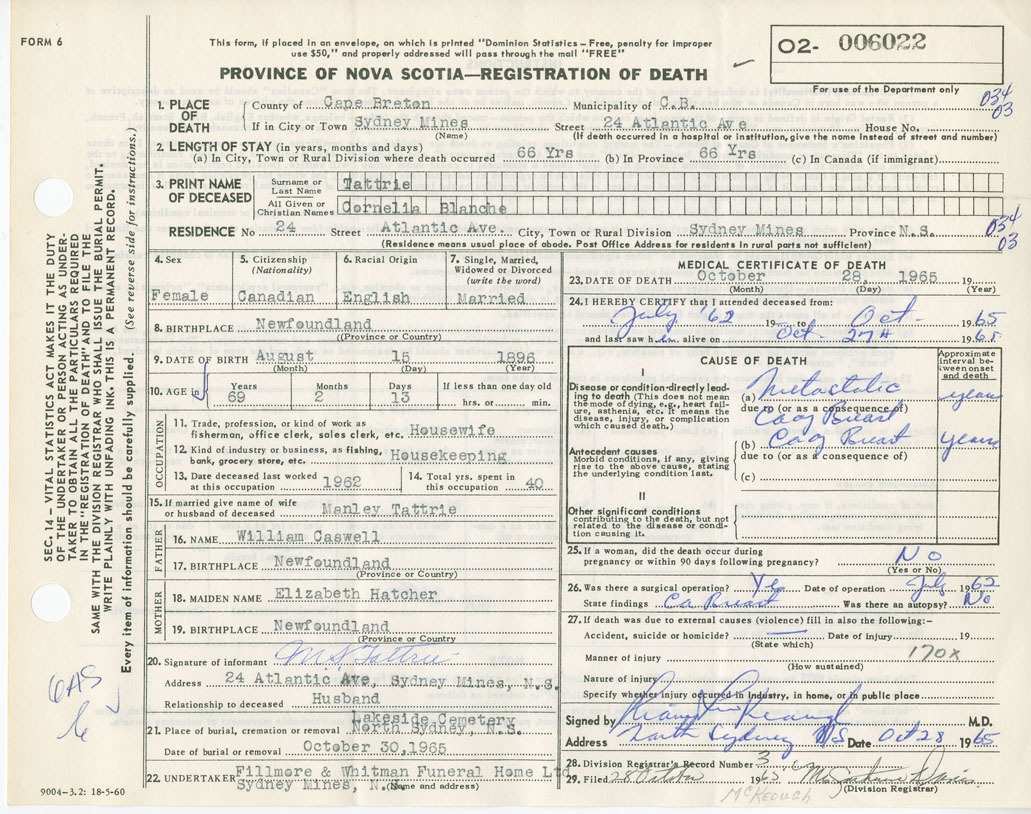 FORM 6
This form, if placed in an envelope, on which is printed "Dominion Statistics – Free, penalty for improper
use $50," and properly addressed will pass through the mail "FREE"
PROVINCE OF NOVA SCOTIA—REGISTRATION OF DEATH
O2- 006022
For use of the Department only
034
03
1. PLACE OF DEATH
County of Cape Breton Municipality of C.B.
If in City or Town Sydney Mines Street 24 Atlantic Ave House No.
(Name) (If death occurred in a hospital or institution, give the name instead of street and number)
2. LENGTH OF STAY (in years, months and days)
(a) In City, Town or Rural Division where death occurred 66 Yrs (b) In Province 66 Yrs (c) In Canada (if immigrant)
3. PRINT NAME OF DECEASED
Surname or Last Name Tattrie
All Given or Christian Names Cornelia Blanche
034
03
RESIDENCE No 24 Street Atlantic Ave. City, Town or Rural Division Sydney Mines Province N.S.
(Residence means usual place of abode. Post Office Address for residents in rural parts not sufficient)
4. Sex
Female
5. Citizenship
(Nationality)
Canadian
6. Racial Origin
English
7. Single, Married,
Widowed or Divorced
(write the word)
Married
8. BIRTHPLACE Newfoundland
(Province or Country)
9. DATE OF BIRTH August 15 1896
(Month) (Day) (Year)
10. AGE in
Years Months Days If less than one day old
69 2 13 hrs. or min.
OCCUPATION
11. Trade, profession, or kind of work as
fisherman, office clerk, sales clerk, etc. Housewife
12. Kind of industry or business, as fishing,
bank, grocery store, etc. Housekeeping
13. Date deceased last worked
at this occupation 1962
14. Total yrs. spent in
this occupation 40
15. If married give name of wife
or husband of deceased Manley Tattrie
FATHER
16. NAME William Caswell
17. BIRTHPLACE Newfoundland
(Province or Country)
MOTHER
18. MAIDEN NAME Elizabeth Hatcher
19. BIRTHPLACE Newfoundland
(Province or Country
20. Signature of informant M.S. Tattrie
Address 24 Atlantic Ave, Sydney Mines, N.S.
Relationship to deceased Husband
Lakeside Cemetery
21. Place of burial, cremation or removal North Sydney, N.S.
Date of burial or removal October 30,1965
22. UNDERTAKER Fillmore & Whitman Funeral Home Ltd
Sydney Mines, N.S.
(Name and address)
9004–3.2: 18-5-60
MEDICAL CERTIFICATE OF DEATH
23. DATE OF DEATH October 28, 1965 19
(Month) (Day) (Year)
24. I HEREBY CERTIFY that I attended deceased from:
July '62 19 to Oct- 1965
and last saw h em alive on Oct- 27th 1965
CAUSE OF DEATH
Approximate
interval be-
tween onset
and death
I
Disease or condition directly lead-
ing to death (This does not mean
the mode of dying, e.g., heart fail-
ure, asthenia, etc. It means the
disease, injury, or complication
which caused death.)
(a) Metastatic years
due to (or as a consequence of)
Ca of Breast
(b) Ca of Breast years
due to (or as a consequence of)
(c)
Antecedent causes
Morbid conditions, if any, giving
rise to the above cause, stating
the underlying condition last.
II
Other significant conditions
contributing to the death, but not
related to the disease or condi-
tion causing it.
25. If a woman, did the death occur during
pregnancy or within 90 days following pregnancy? No
(Yes or No)
26. Was there a surgical operation? Yes Date of operation July 1962
State findings Ca Breast Was there an autopsy? No
27. If death was due to external causes (violence) fill in also the following:–
Accident, suicide or homicide? Date of injury 19
(State which)
Manner of injury 170X
(How sustained)
Nature of injury
Specify whether injury occurred in industry, in home, or in public place
Signed by Keough M.D.
Address North Sydney NS Date Oct 28 1965
28. Division Registrar's Record Number 36
29. Filed 28 October 1965
(Division Registrar)
McKeough
SEC. 14 – VITAL STATISTICS ACT MAKES IT THE DUTY
OF THE UNDERTAKER OR PERSON ACTING AS UNDER-
TAKER TO OBTAIN ALL THE PARTICULARS REQUIRED
IN THE "REGISTRATION OF DEATH" AND TO FILE THE
SAME WITH THE DIVISION REGISTRAR WHO SHALL ISSUE THE BURIAL PERMIT.
WRITE PLAINLY WITH UNFADING INK. THIS IS A PERMANENT RECORD.
Every item of information should be carefully supplied. (See reverse side for instructions.)